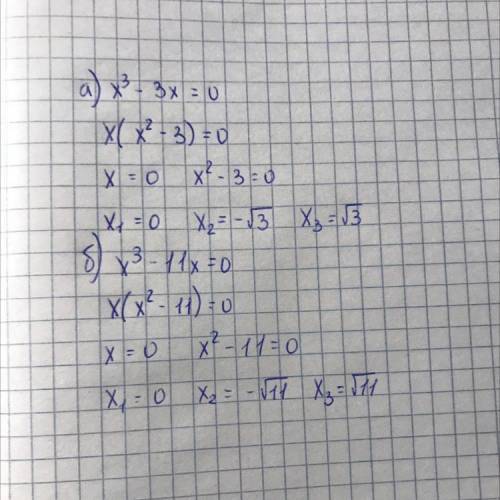 а) x³ - 3x = 0
x(x² - 3) = 0
x = 0 x² - 3 = 0
x₁ = 0 x₂ = -√3 x₃ = √3
б) x³ - 11x = 0
x(x² - 11) = 0
x = 0 x² - 11 = 0
x₁ = 0 x₂ = -√11 x₃ = √11